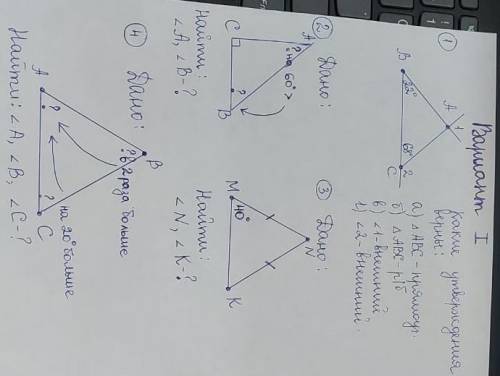 Вариант I
① Какие утверждения верны:
A
1
B
22°
68°
2
C
а) △ABC – прямоуг.
б) △ABC – р/б
в) ∠1 – внешний
г) ∠2 – внешний.
② Дано:
A
? на 60° >
C
?
B
Найти:
∠A, ∠B – ?
③ Дано:
N
M
40°
K
Найти:
∠N, ∠K – ?
④ Дано:
B
? в 2 раза больше
A
?
?
C
на 20° больше
Найти: ∠A, ∠B, ∠C – ?